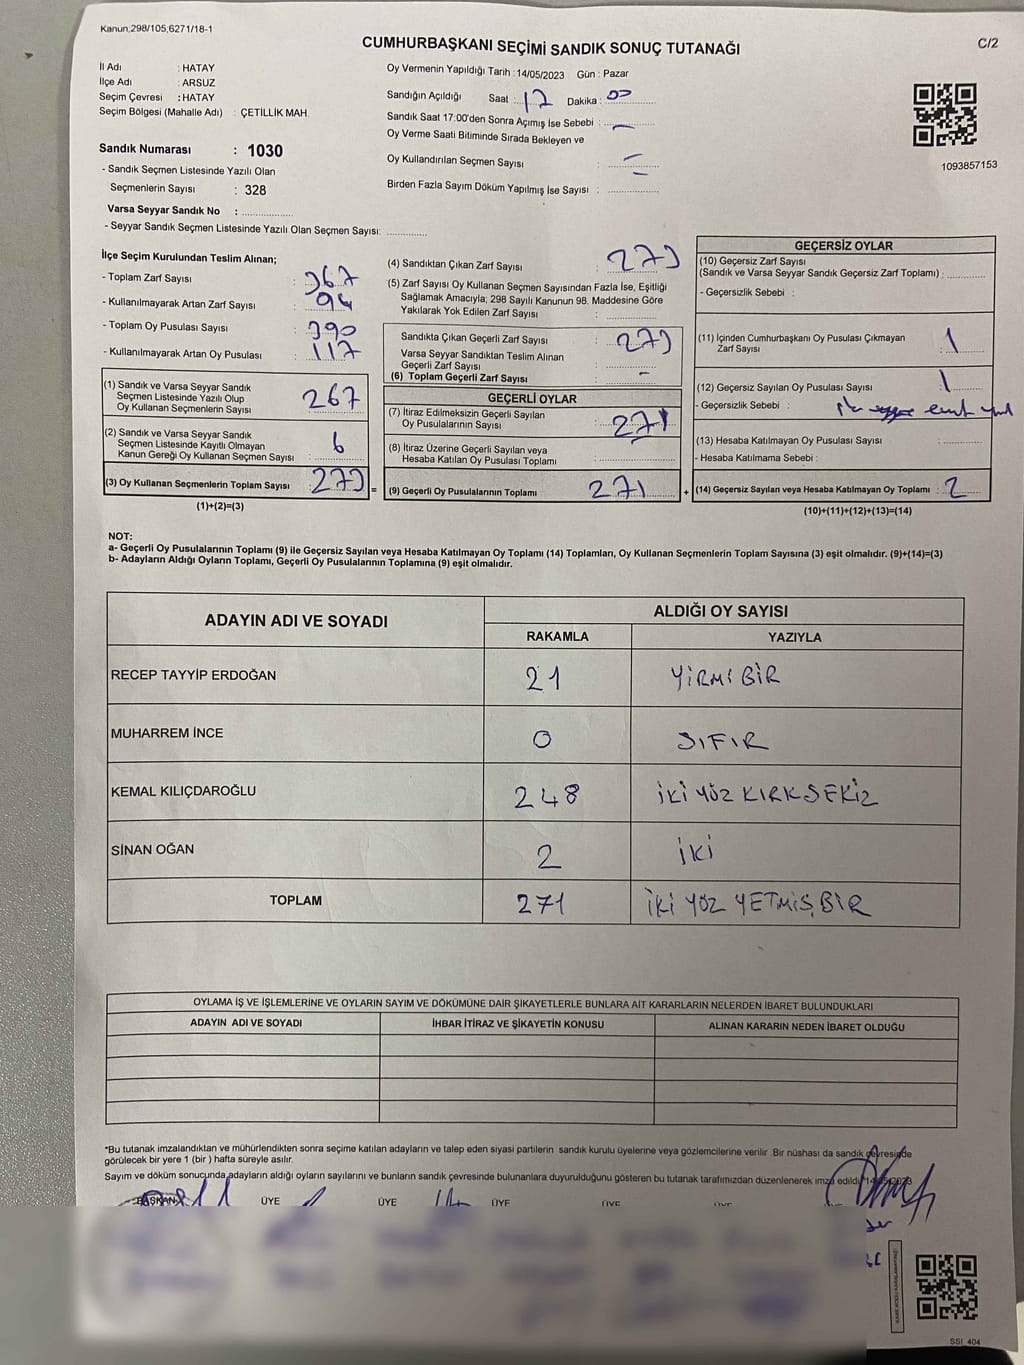 Kanun;298/105;6271/18-1
CUMHURBAŞKANI SEÇİMİ SANDIK SONUÇ TUTANAĞI
C/2
İl Adı : HATAY
İlçe Adı : ARSUZ
Seçim Çevresi : HATAY
Seçim Bölgesi (Mahalle Adı) : ÇETİLLİK MAH.
Sandık Numarası : 1030
- Sandık Seçmen Listesinde Yazılı Olan
Seçmenlerin Sayısı : 328
Varsa Seyyar Sandık No :
- Seyyar Sandık Seçmen Listesinde Yazılı Olan Seçmen Sayısı:
Oy Vermenin Yapıldığı Tarih : 14/05/2023 Gün : Pazar
Sandığın Açıldığı Saat : 17 Dakika : 00
Sandık Saat 17:00'den Sonra Açımış İse Sebebi : –
Oy Verme Saati Bitiminde Sırada Bekleyen ve
Oy Kullandırılan Seçmen Sayısı : –
Birden Fazla Sayım Döküm Yapılmış İse Sayısı : –
1093857153
İlçe Seçim Kurulundan Teslim Alınan;
- Toplam Zarf Sayısı : 367
- Kullanılmayarak Artan Zarf Sayısı : 94
- Toplam Oy Pusulası Sayısı : 390
- Kullanılmayarak Artan Oy Pusulası : 117
(1) Sandık ve Varsa Seyyar Sandık
Seçmen Listesinde Yazılı Olup
Oy Kullanan Seçmenlerin Sayısı : 267
(2) Sandık ve Varsa Seyyar Sandık
Seçmen Listesinde Kayıtlı Olmayan
Kanun Gereği Oy Kullanan Seçmen Sayısı : 6
(3) Oy Kullanan Seçmenlerin Toplam Sayısı : 273 =
(1)+(2)=(3)
(4) Sandıktan Çıkan Zarf Sayısı : 273
(5) Zarf Sayısı Oy Kullanan Seçmen Sayısından Fazla İse, Eşitliği
Sağlamak Amacıyla; 298 Sayılı Kanunun 98. Maddesine Göre
Yakılarak Yok Edilen Zarf Sayısı :
Sandıkta Çıkan Geçerli Zarf Sayısı : 273
Varsa Seyyar Sandıktan Teslim Alınan
Geçerli Zarf Sayısı :
(6) Toplam Geçerli Zarf Sayısı : –
GEÇERLİ OYLAR
(7) İtiraz Edilmeksizin Geçerli Sayılan
Oy Pusulalarının Sayısı : 271
(8) İtiraz Üzerine Geçerli Sayılan veya
Hesaba Katılan Oy Pusulası Toplamı :
(9) Geçerli Oy Pusulalarının Toplamı : 271 +
GEÇERSİZ OYLAR
(10) Geçersiz Zarf Sayısı
(Sandık ve Varsa Seyyar Sandık Geçersiz Zarf Toplamı) :
- Geçersizlik Sebebi :
(11) İçinden Cumhurbaşkanı Oy Pusulası Çıkmayan
Zarf Sayısı : 1
(12) Geçersiz Sayılan Oy Pusulası Sayısı : 1
- Geçersizlik Sebebi :
(13) Hesaba Katılmayan Oy Pusulası Sayısı :
- Hesaba Katılmama Sebebi :
(14) Geçersiz Sayılan veya Hesaba Katılmayan Oy Toplamı : 2
(10)+(11)+(12)+(13)=(14)
NOT:
a- Geçerli Oy Pusulalarının Toplamı (9) ile Geçersiz Sayılan veya Hesaba Katılmayan Oy Toplamı (14) Toplamları, Oy Kullanan Seçmenlerin Toplam Sayısına (3) eşit olmalıdır. (9)+(14)=(3)
b- Adayların Aldığı Oyların Toplamı, Geçerli Oy Pusulalarının Toplamına (9) eşit olmalıdır.
ADAYIN ADI VE SOYADI
ALDIĞI OY SAYISI
RAKAMLA YAZIYLA
RECEP TAYYİP ERDOĞAN 21 YİRMİ BİR
MUHARREM İNCE 0 SIFIR
KEMAL KILIÇDAROĞLU 248 İKİ YÜZ KIRK SEKİZ
SİNAN OĞAN 2 İKİ
TOPLAM 271 İKİ YÜZ YETMİŞ BİR
OYLAMA İŞ VE İŞLEMLERİNE VE OYLARIN SAYIM VE DÖKÜMÜNE DAİR ŞİKAYETLERLE BUNLARA AİT KARARLARIN NELERDEN İBARET BULUNDUKLARI
ADAYIN ADI VE SOYADI
İHBAR İTİRAZ VE ŞİKAYETİN KONUSU
ALINAN KARARIN NEDEN İBARET OLDUĞU
*Bu tutanak imzalandıktan ve mühürlendikten sonra seçime katılan adayların ve talep eden siyasi partilerin sandık kurulu üyelerine veya gözlemcilerine verilir .Bir nüshası da sandık çevresinde
görülecek bir yere 1 (bir ) hafta süreyle asılır.
Sayım ve döküm sonucunda adayların aldığı oyların sayılarını ve bunların sandık çevresinde bulunanlara duyurulduğunu gösteren bu tutanak tarafımızdan düzenlenerek imza edildi. 14/05/2023
BAŞKAN ÜYE ÜYE ÜYE ÜYE ÜYE
SSI_404